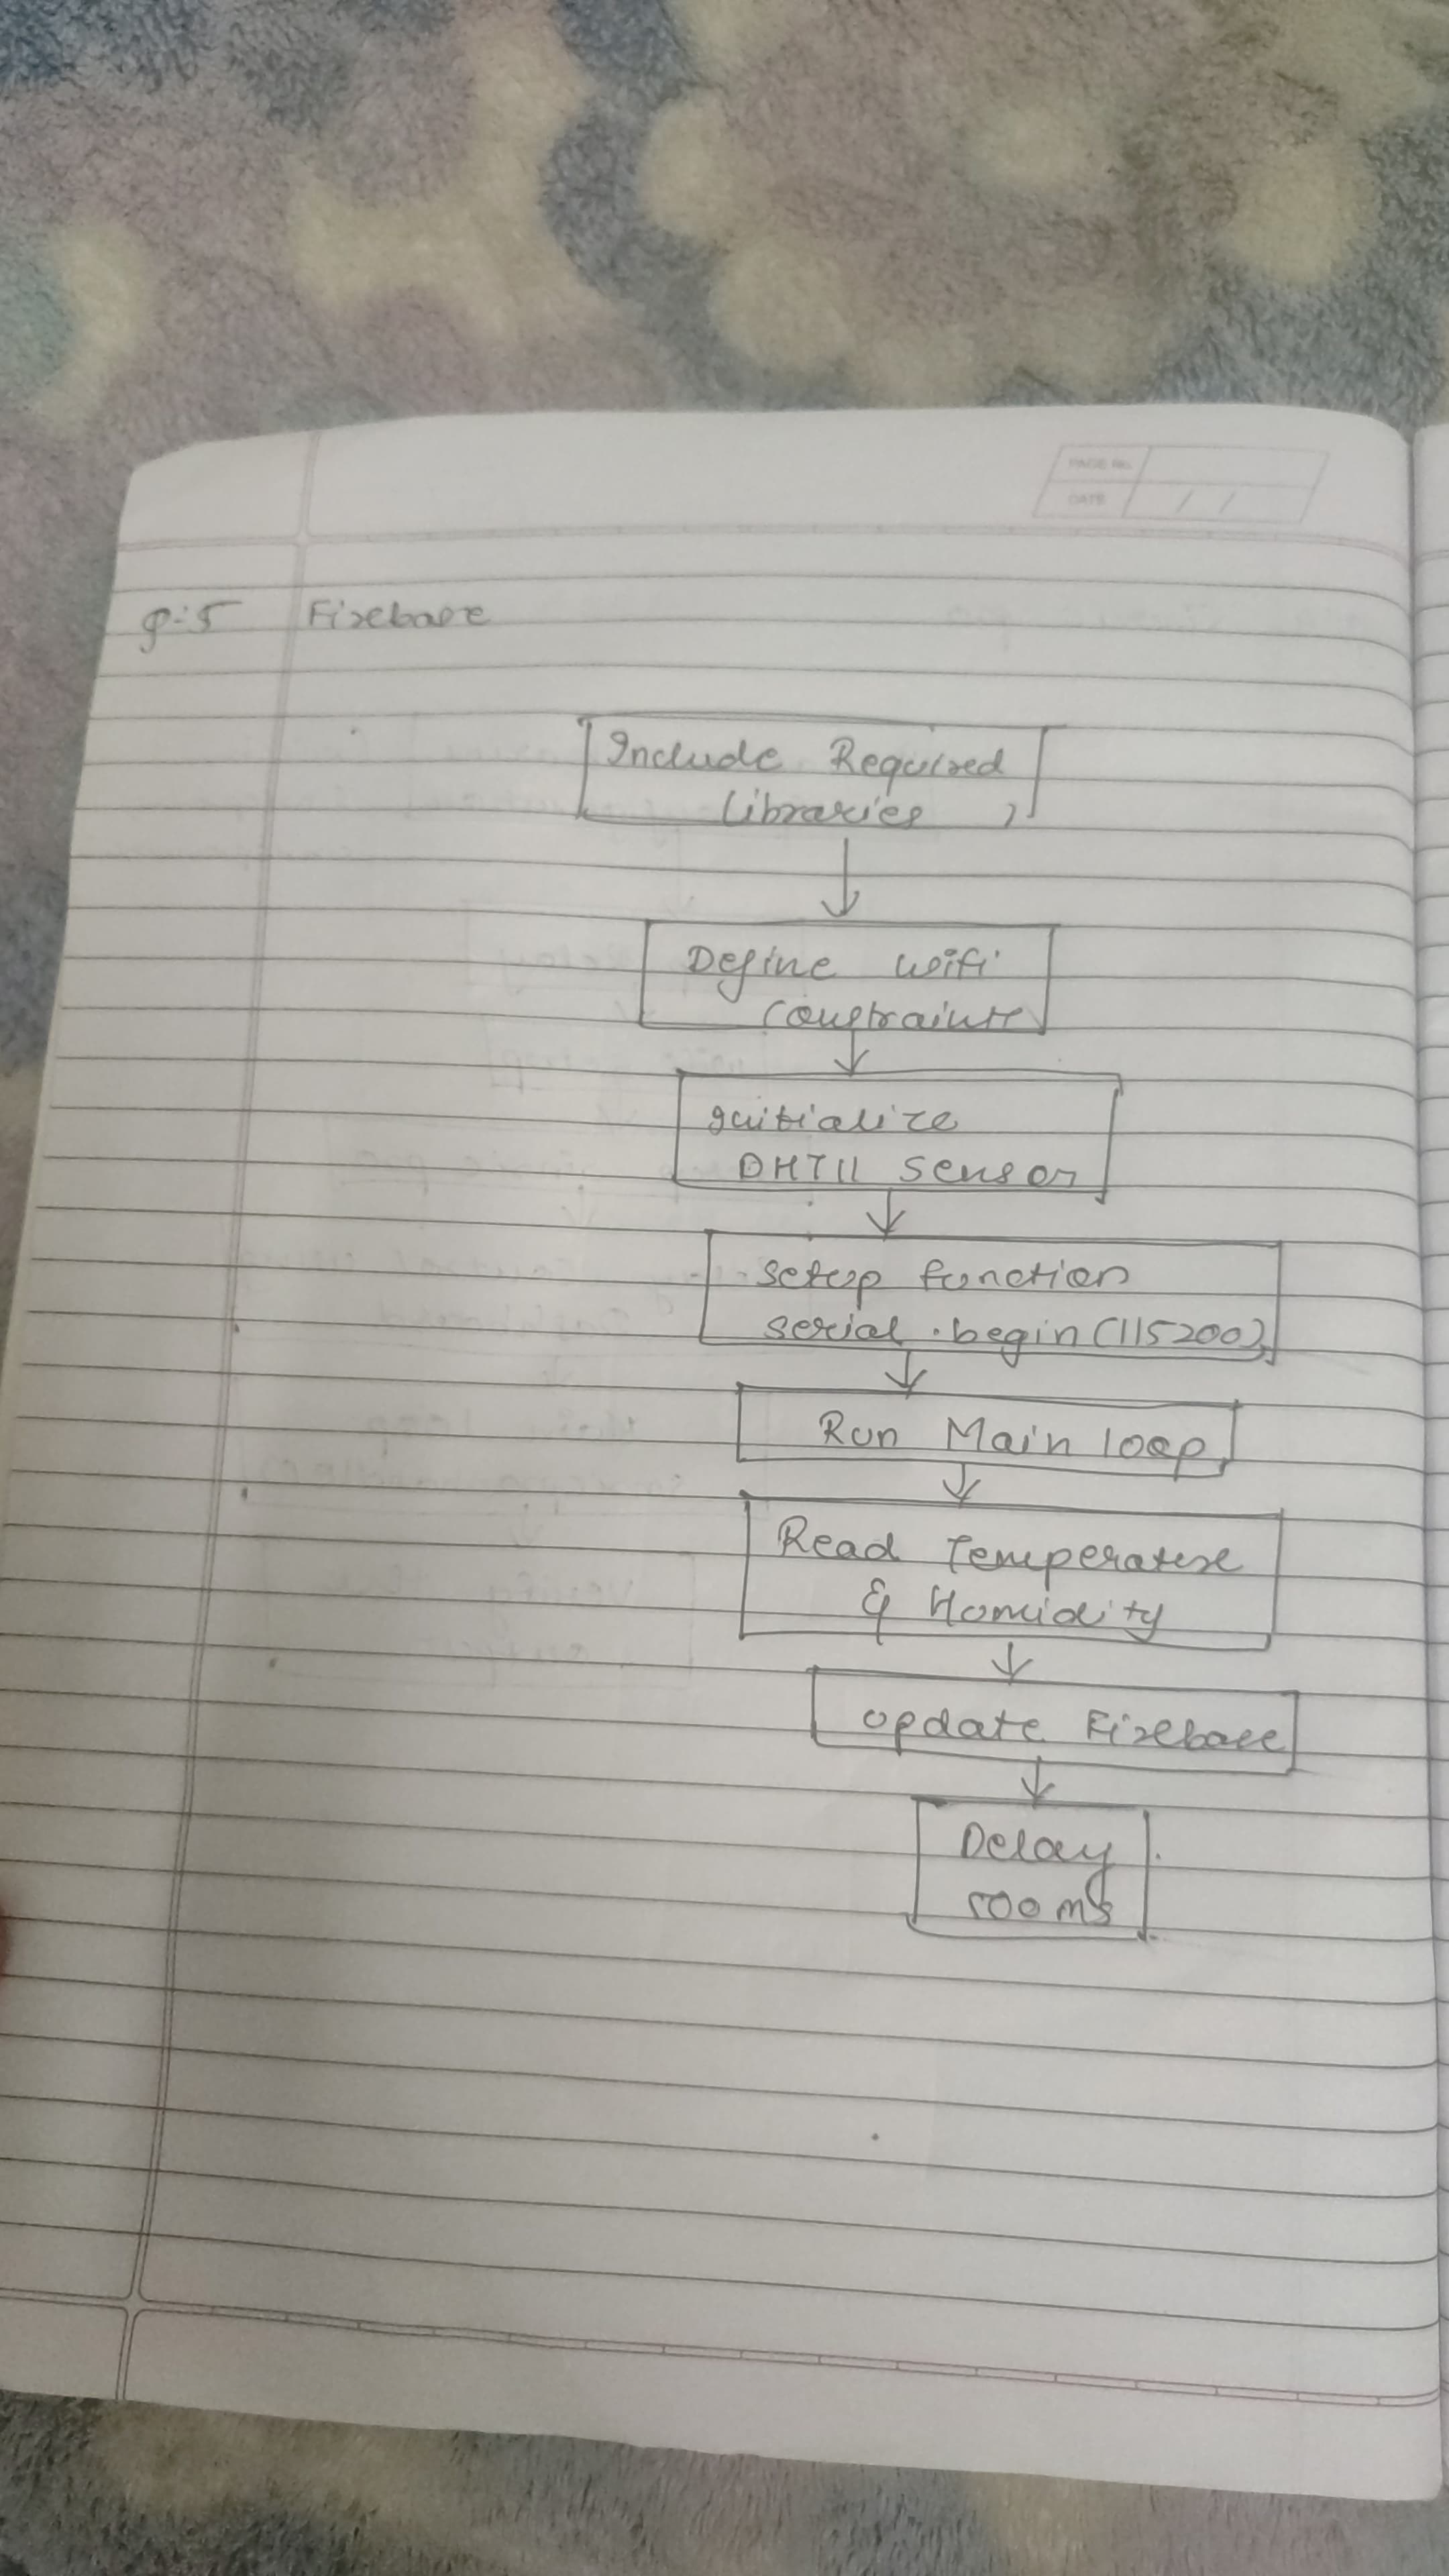 PAGE No.
DATE / /
P:5 Firebase
Include Required
Libraries
Define wifi
constraints
Initialize
DHT11 Sensor
setup function
serial.begin(115200);
Run Main loop
Read Temperature
& Humidity
update Firebase
Delay
500 ms